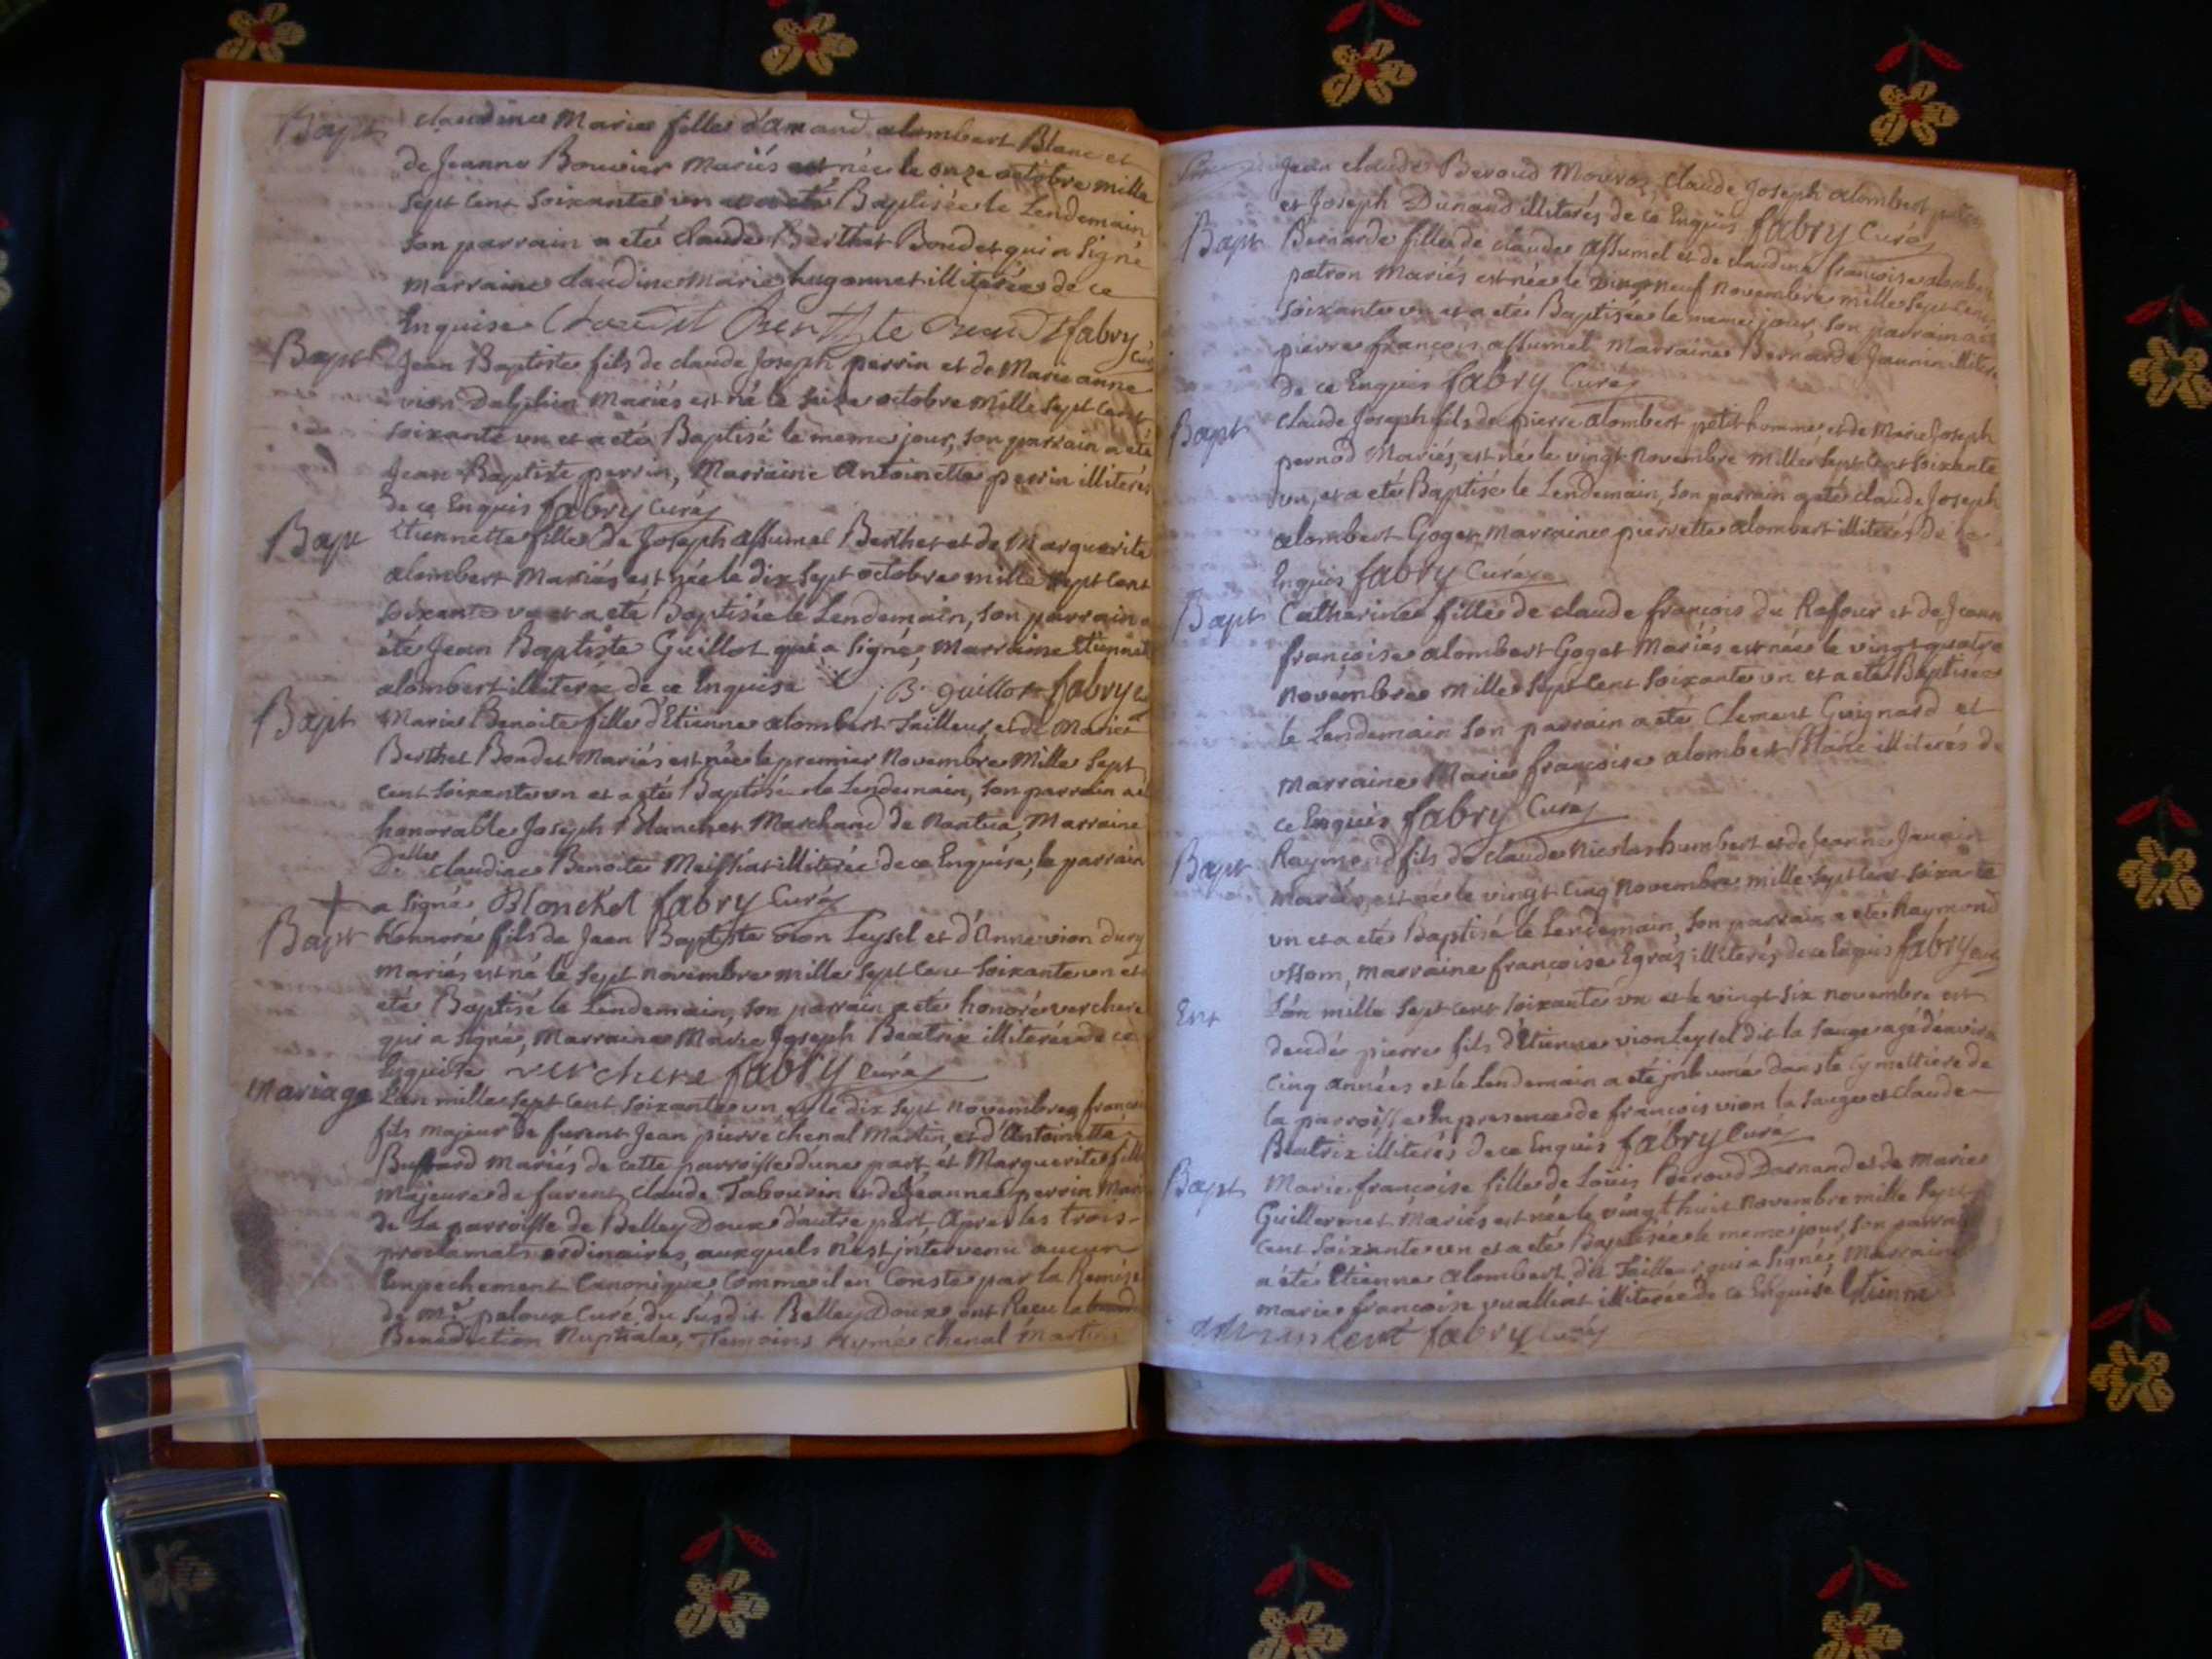 Bapt claudine Marie fille d'amand alombert Blanc et
de Jeanne Bouvier Mariés est née le onze octobre mille
sept cent soixante un et a eté Baptisée le Lendemain
son parrain a eté claude Berthet Bondet qui a signé
marraine claudine Marie hugonnet illiterée de ce
Enquise fabry Curé
Bapt Jean Baptiste fils de claude Joseph perrin et de Marie anne
vion Dalphin Mariés est né le seize octobre mille sept cent
soixante un et a eté Baptisé le meme jour, son parrain a eté
Jean Baptiste perrin, Marraine Antoinette perrin illiterés
de ce Enquis fabry Curé
Bapt Etiennette fille de Joseph assumel Berthet et de Marguerite
alombert Mariés est née le dix sept octobre mille sept cent
soixante un et a eté Baptisée le Lendemain, son parrain a
été Jean Baptiste Guillot qui a signé, Marraine Etiennet
alombert illiterée de ce Enquise J B guillot fabry Cu
Bapt Marie Benoite fille d'Etienne alombert Tailleur, et de Marie
Berthet Bondet Mariés est née le premier Novembre Mille sept
cent soixante un et a eté Baptisé le Lendemain, son parrain a e
honorable Joseph Blanchet Marchand de Nantua, Marraine
Delle claudine Benoite Meissiat illiterée de ce Enquise, le parrain
a signé Blonchet fabry Curé
Bapt Honnoré fils de Jean Baptiste vion Leysel et d'Anne vion dury
mariés est né le sept novembre mille sept cent soixante un et
eté Baptisé le Lendemain, son parrain a eté honoré verchere
qui a signé, Marraine Marie Joseph Beatrix illiterée de ce
Enquise verchere fabry Curé
Mariage L'an mille sept cent soixante un et le dix sept novembre, francoi
fils majeur de furent Jean pierre chenal Martin, et d'Antoinette
Buffard mariés de cette parroisse d'une part et Marguerite fille
majeure de furent claude Tabourin et de Jeanne perrin Mari
de La parroisse de Belley Doux d'autre part, Apres les trois
proclamats ordinaires, auxquels n'est jntervenu aucun
Empechement Canonique Comme il en Conste par la Remise
de mr paloux Curé du susdit Belley Doux, ont Recu la
Benediction Nuptiale, Temoins Aymé chenal Martin
Jean claude Beroud Mouroz, claude Joseph alombert
et Joseph Dunand illiterés de ce Enquis fabry Curé
Bapt Bernarde fille de claude assumel et de claudine françoise alombert
patron Mariés est née le Dix neuf Novembre mille sept cent
soixante un et a eté Baptisée le meme jour, son parrain a e
pierre françois assumel Marraine Bernarde Jannin illitere
de ce Enquis fabry Curé
Bapt Claude Joseph fils de pierre alombert petit homme, et de Marie Joseph
pernod Mariés, est né le vingt Novembre mille sept cent soixante
un, et a eté Baptisé le Lendemain, son parrain a eté claude Joseph
alombert Goget Marraine pierrette alombert illiterés de ce
Enquis fabry Curé
Bapt Catharine fille de claude françois du Rafour et de Jeann
françoise alombert Goget Mariés est née le vingt quatre
novembre mille sept cent soixante un et a eté Baptisée
le Lendemain son parrain a eté Clement Guignard et
Marraine Marie françoise alombert Blanc illiterés de
ce Enquis fabry Curé
Bapt Raymond fils de claude nicolas humbert et de Jeanne Jannin
Mariés, est né le vingt cinq Novembre mille sept cent soixante
un et a eté Baptisé le Lendemain, son parrain a eté Raymond
ussom, marraine françoise Egraz illiterés de ce Enquis fabry Curé
Ent L'an mille sept cent soixante un et le vingt six novembre est
decedé pierre fils d'Etienne vion Leysel dit la sauge agé d'environ
cinq années et le Lendemain a eté jnhumé dans le Cymettiere de
la parroisse En presence de francois vion la sauge et claude
Beatrix illiterés de ce Enquis fabry Curé
Bapt Marie françoise fille de Loüis Beroud Darnand et de Marie
Guillermet Mariés est née le vingt huit novembre mille sept
cent soixante un et a eté Baptisée le meme jour, son parrain
a été Etienne alombert dit Tailleur qui a signé, Marraine
marie francoise vuaillat illiterée de ce Enquise Etienne
fabry Curé